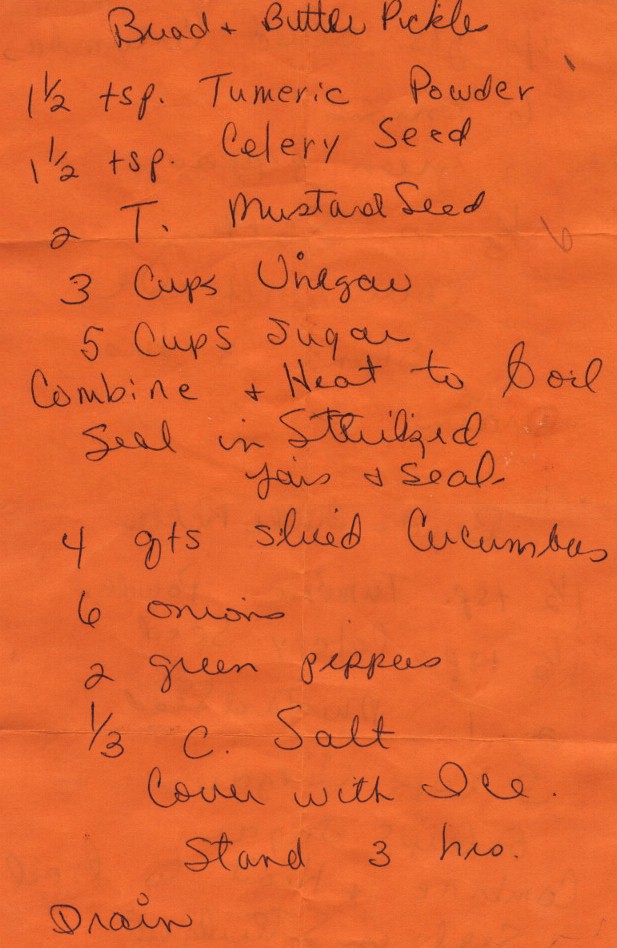 Bread + Butter Pickles
1 1/2 tsp. Tumeric Powder
1 1/2 tsp. Celery Seed
2 T. Mustard Seed
3 Cups Vinegar
5 Cups Sugar
Combine + Heat to boil
Seal in Sterilized
jars & seal.
4 qts sliced Cucumbers
6 onions
2 green peppers
1/3 C. Salt
Cover with Ice.
Stand 3 hrs.
Drain